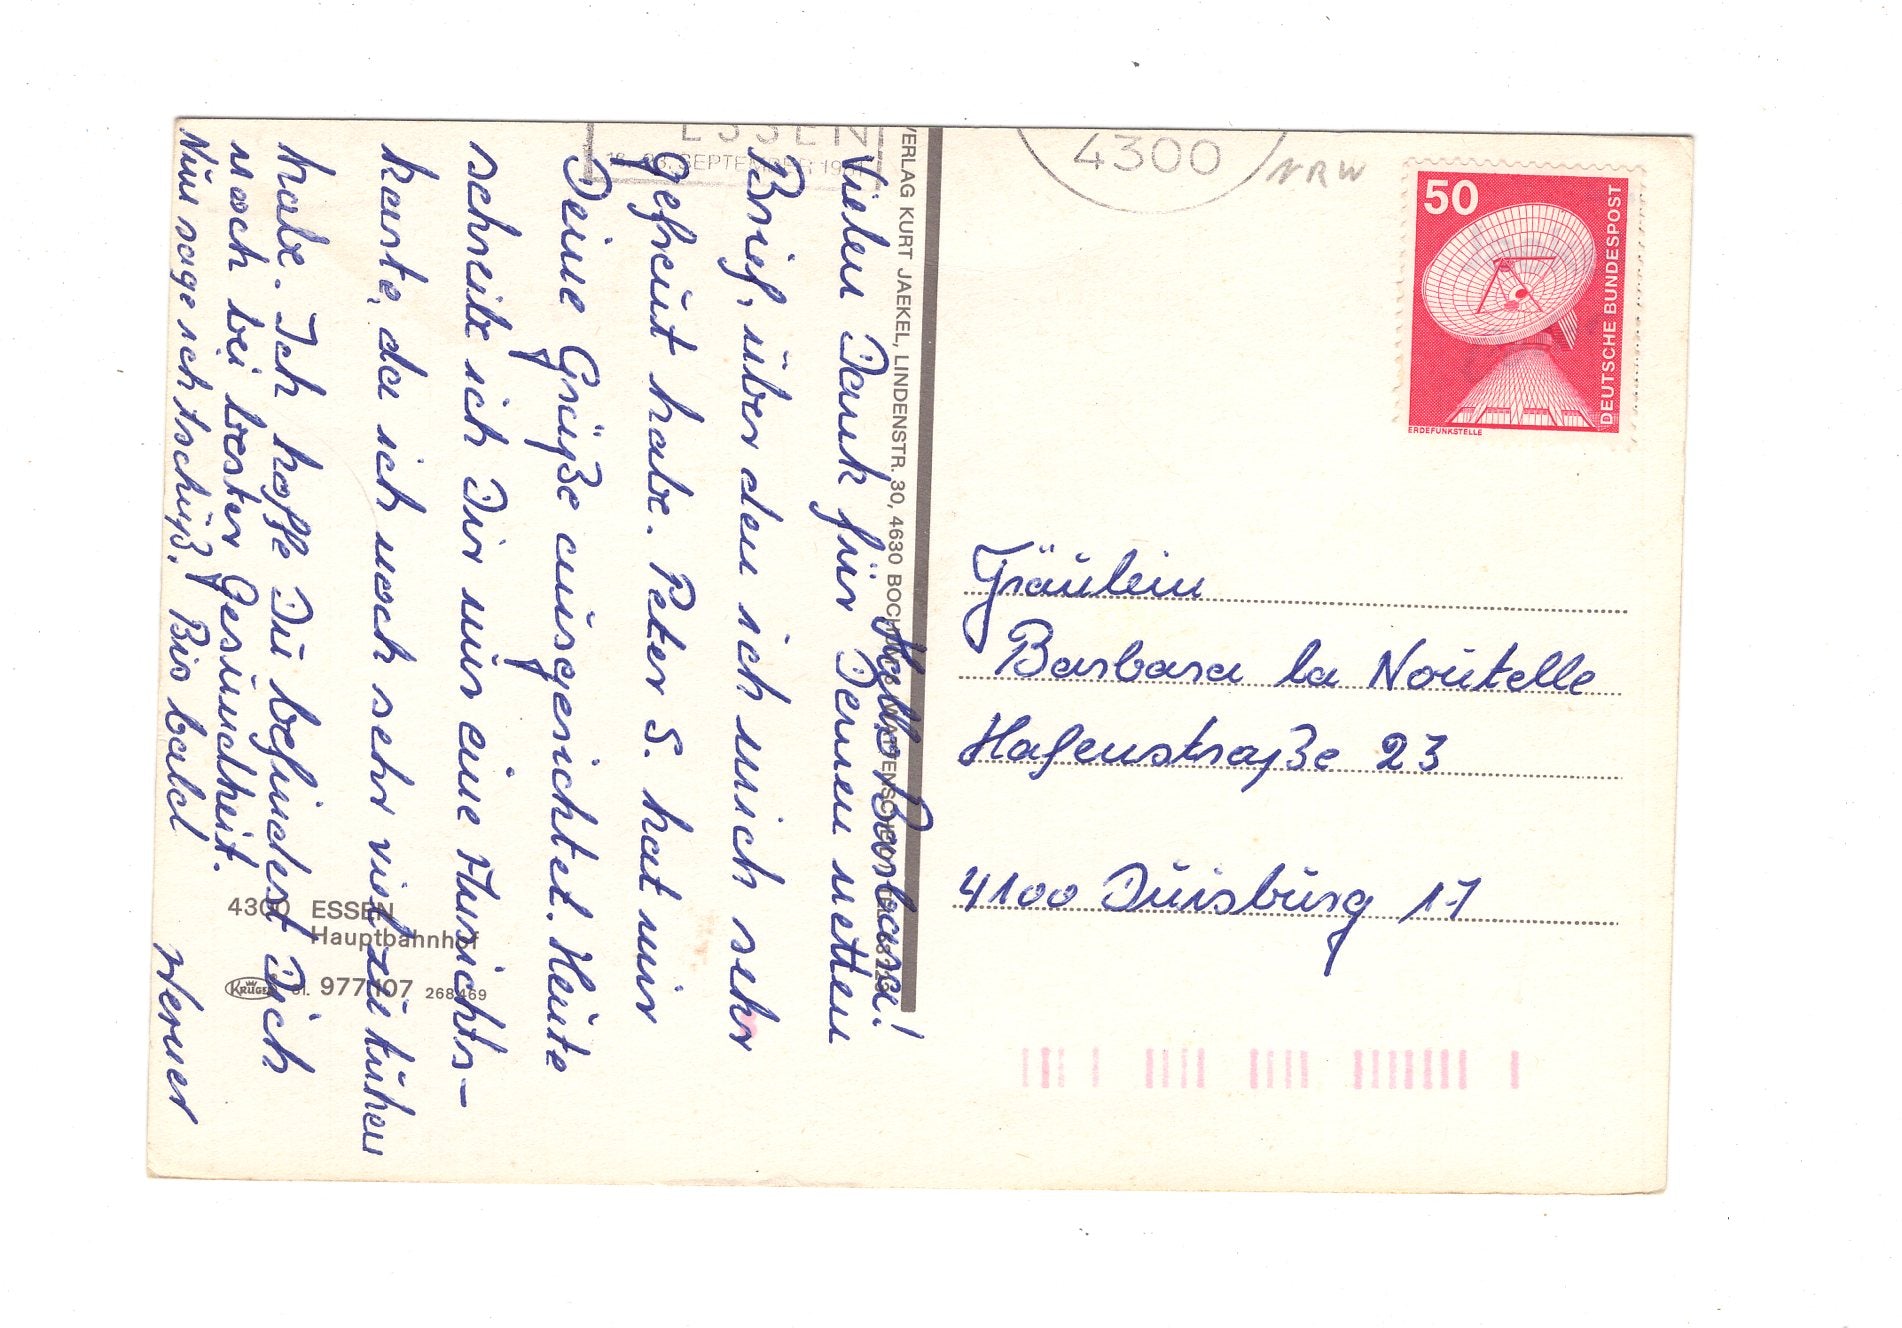 Hallo Barbara!
Vielen Dank für Deinen netten
Brief, über den ich mich sehr
gefreut habe. Peter S. hat mir
Deine Grüße ausgerichtet. Heute
schreibe ich Dir nur eine Ansichts-
karte, da ich noch sehr viel zu tuhen
habe. Ich hoffe Du befindest Dich
noch bei bester Gesundheit.
Nun sage ich tschüß. Bis bald
Werner
4300 ESSEN
Hauptbahnhof
KRÜGER 977/107 268469
ESSEN
SEPTEMBER
VERLAG KURT JAEKEL, LINDENSTR. 30, 4630 BOCHUM
4300
NRW
50
DEUTSCHE BUNDESPOST
ERDEFUNKSTELLE
Fräulein
Barbara la Noutelle
Hafenstraße 23
4100 Duisburg 17